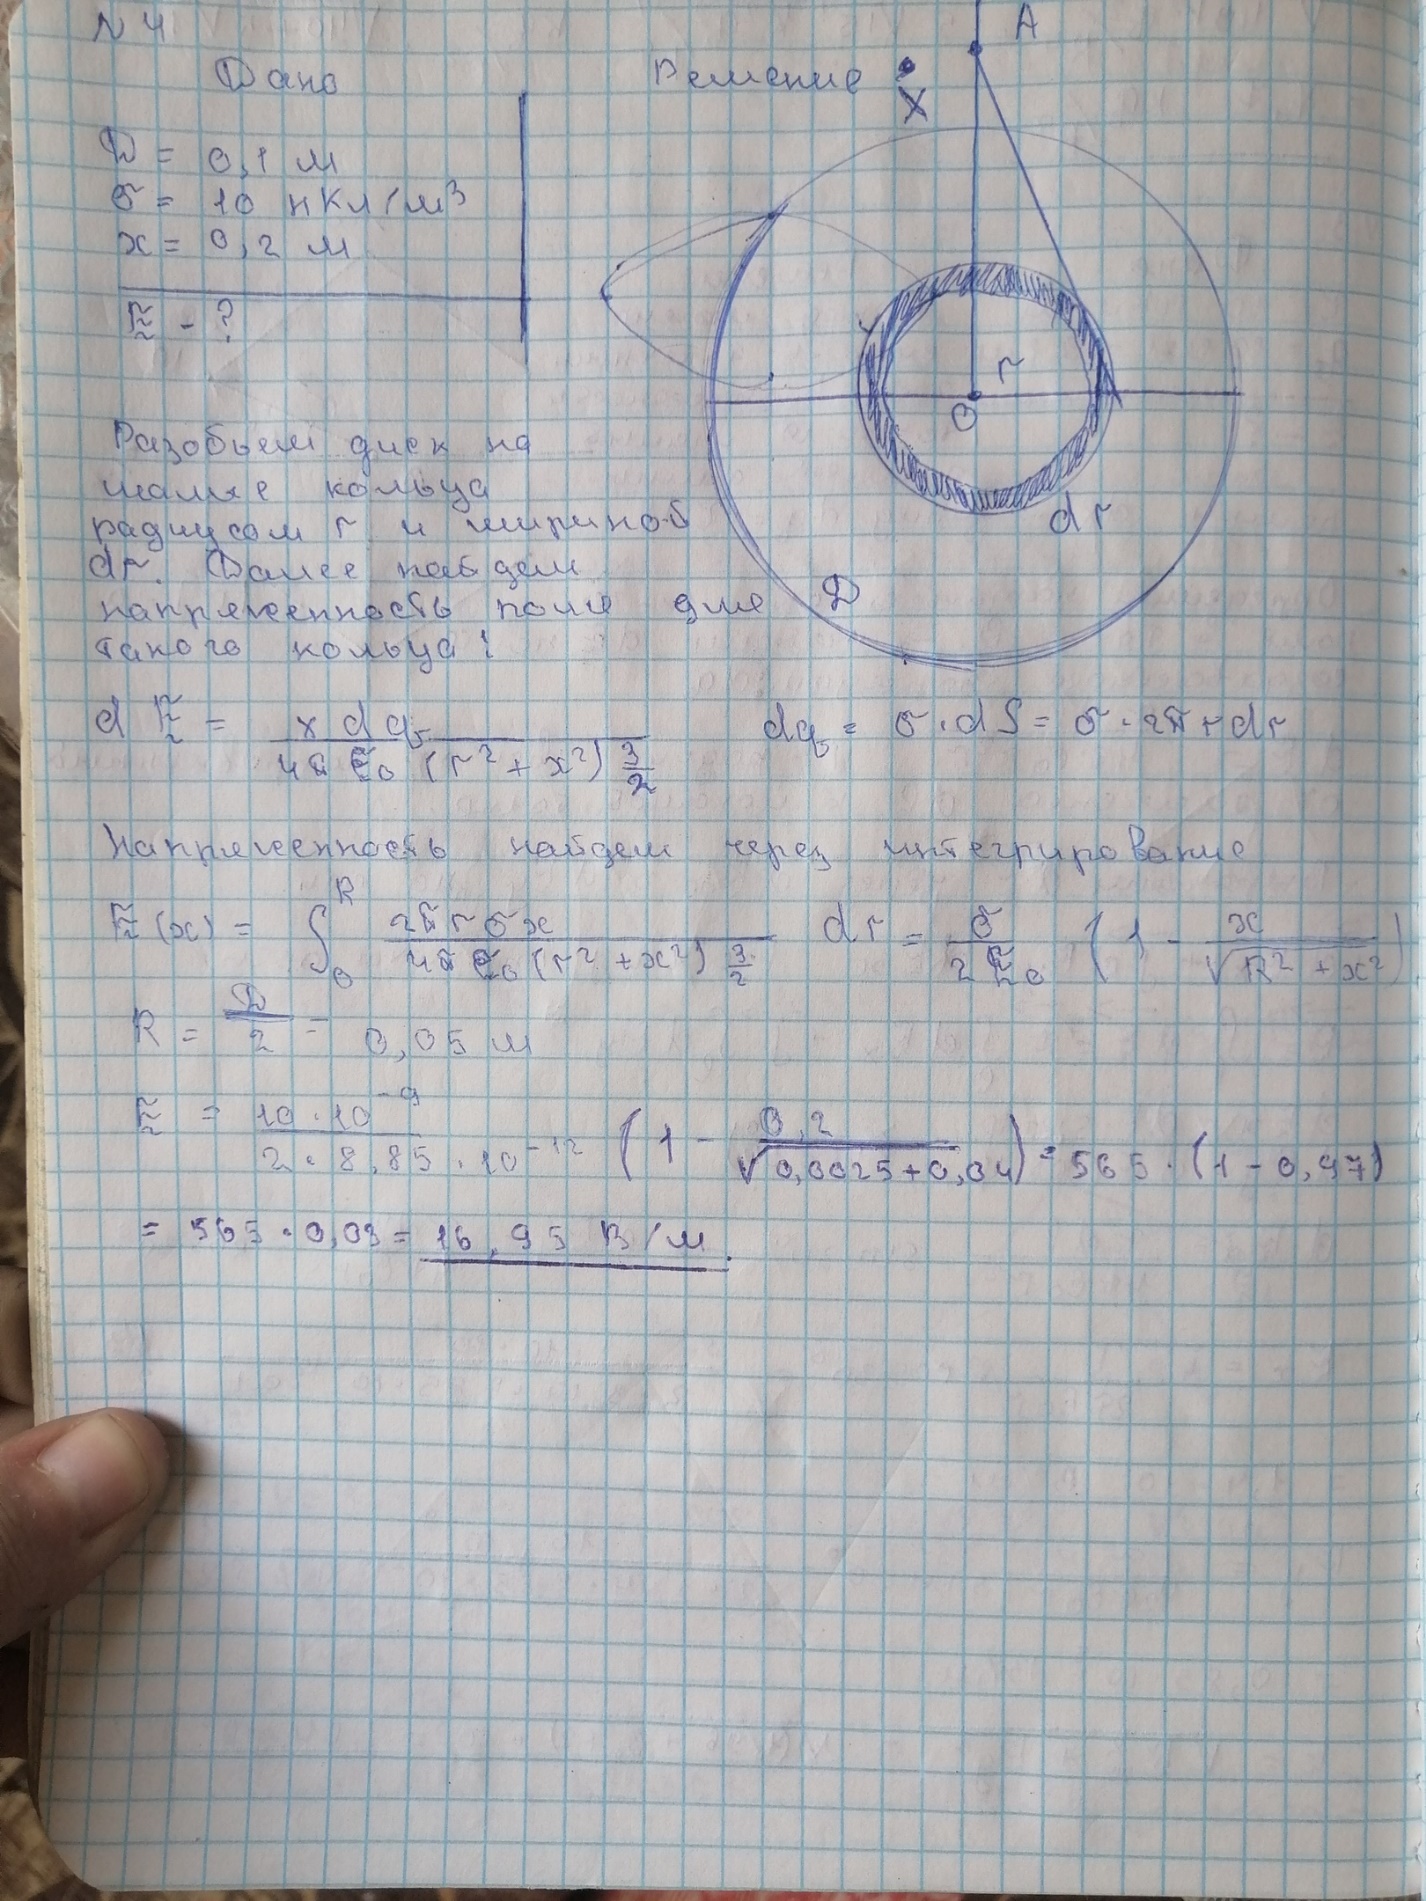 N 4
Дано
Решение
X
A
D = 0,1 м
σ = 10 нКл/м³
x = 0,2 м
E - ?
r
O
dr
D
Разобьем диск на
малые кольца
радиусом r и шириной
dr. Далее найдем
напряженность поля для
такого кольца:
dE = x dq / 4πε₀ (r² + x²)^3/2
dq = σ·dS = σ·2πrdr
Напряженность найдем через интегрирование
E(x) = ∫₀ᴿ 2πrσx / 4πε₀(r² + x²)^3/2 dr = σ / 2ε₀ (1 - x / √R² + x²)
R = D / 2 = 0,05 м
E = 10·10⁻⁹ / 2·8,85·10⁻¹² (1 - 0,2 / √0,0025+0,04) = 565·(1-0,97)
= 565·0,03 = 16,95 В/м.